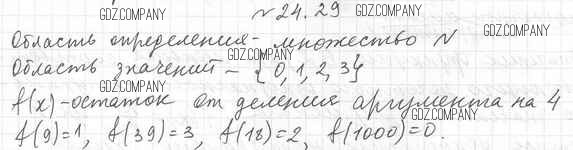 №24.29
Область определения - множество N
Область значений - {0, 1, 2, 3}
f(x) - остаток от деления аргумента на 4
f(9)=1, f(39)=3, f(18)=2, f(1000)=0.
GDZ.COMPANY
GDZ.COMPANY
GDZ.COMPANY
GDZ.COMPANY
GDZ.COMPANY
GDZ.COMPANY
GDZ.COMPANY
GDZ.COMPANY